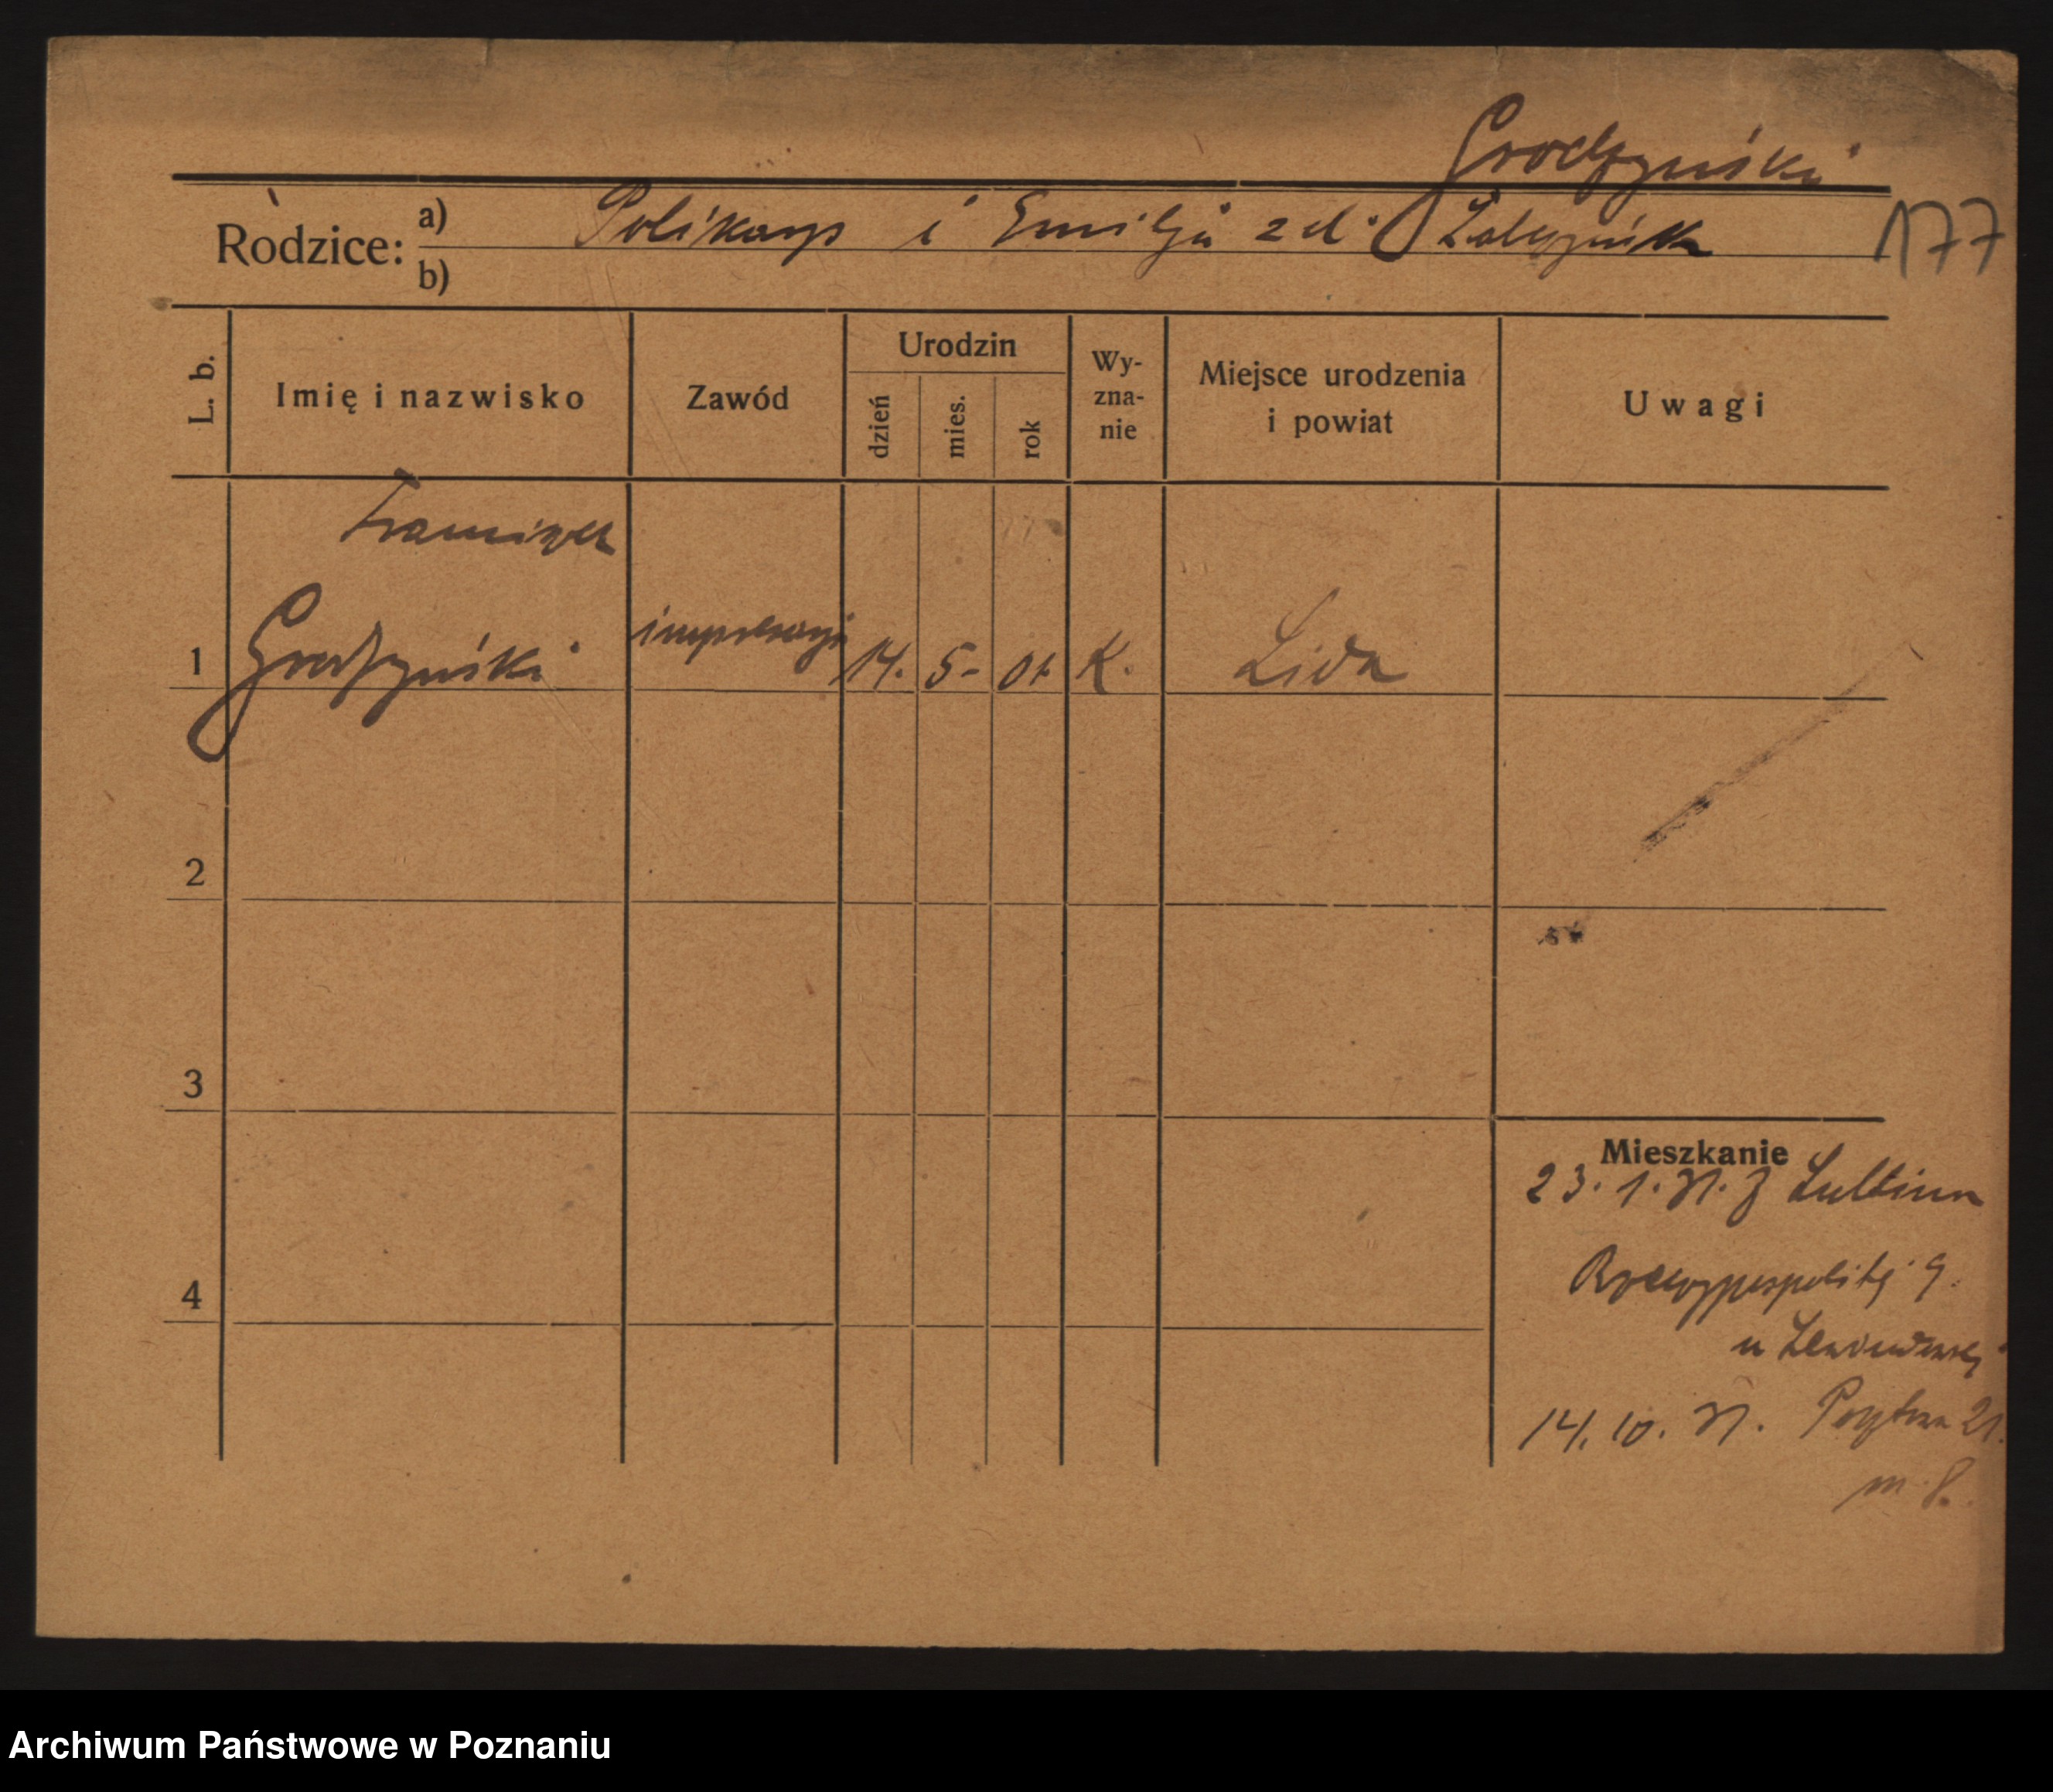 Grodzyński
177
Rodzice:
a) Polikarp i Emilja z d.
b)
L. b.
Imię i nazwisko
Zawód
Urodzin
dzień
mies.
rok
Wy-
zna-
nie
Miejsce urodzenia
i powiat
Uwagi
Franciszek
1 Grodzyński 14. 5- 01. K. Lida
2
3
4
Mieszkanie
23. 1. 31. z Lublina
Rzeczypospolitej 9.
u
14. 10. 31. 21.
m. 8.
Archiwum Państwowe w Poznaniu